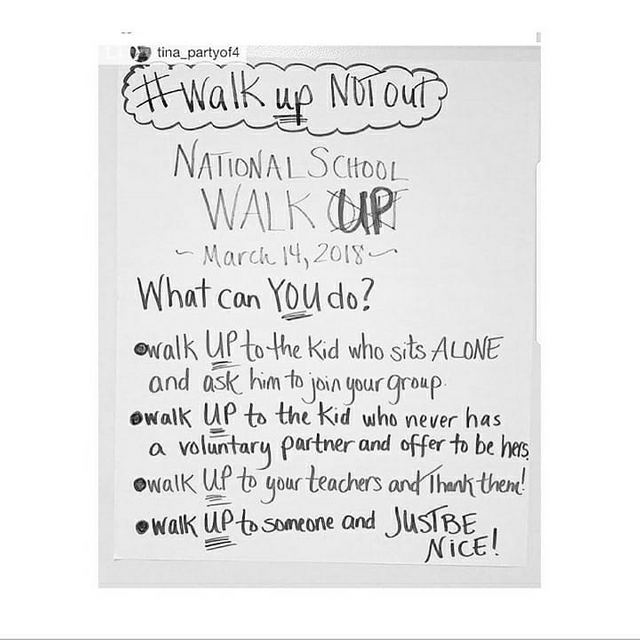 tina_partyof4
#Walk up NOT out
NATIONAL SCHOOL
WALK UP
~ March 14, 2018 ~
What can YOU do?
•walk UP to the kid who sits ALONE
and ask him to join your group.
•walk UP to the kid who never has
a voluntary partner and offer to be hers.
•walk UP to your teachers and Thank them!
•walk UP to someone and JUST BE
NICE!